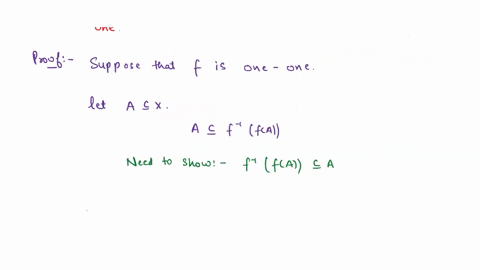 one.
Proof:- Suppose that f is one-one.
let A ⊆ X.
A ⊆ f⁻¹(f(A))
Need to show:- f⁻¹(f(A)) ⊆ A